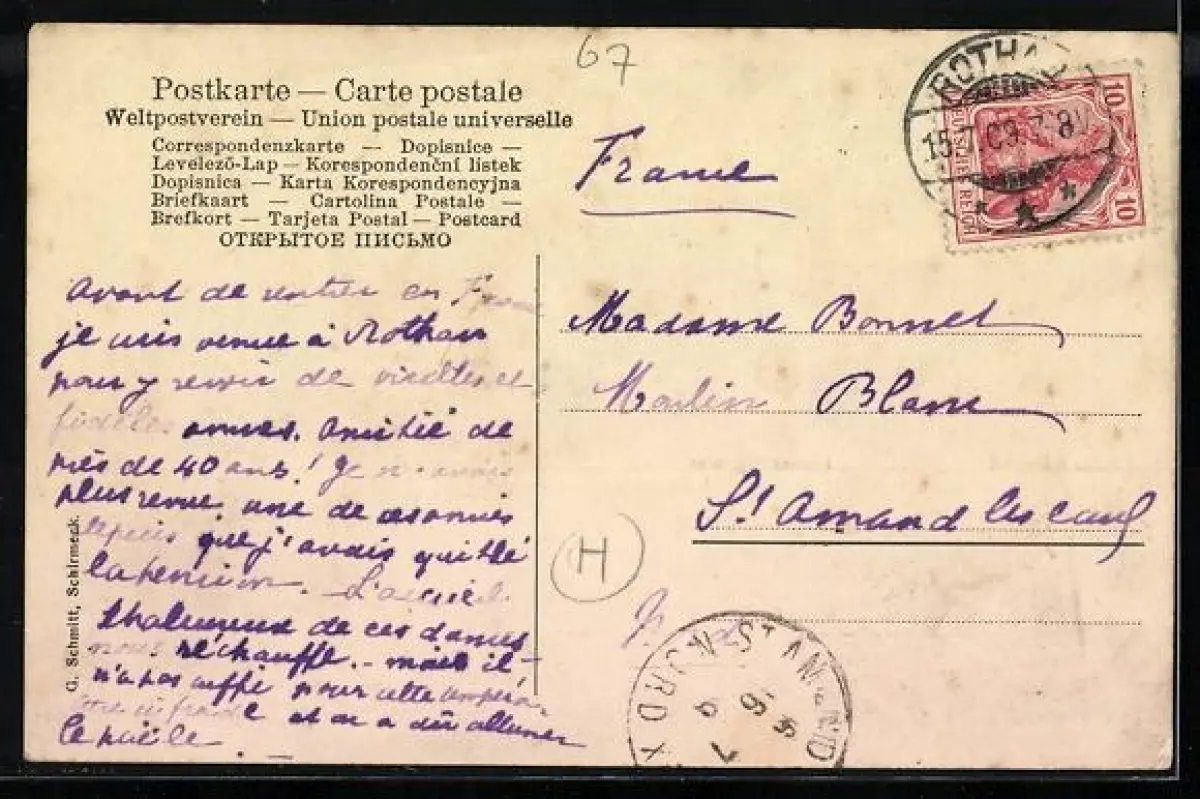 67
Postkarte — Carte postale
Weltpostverein — Union postale universelle
Correspondenzkarte — Dopisnice —
Levelező-Lap — Korespondenční listek
Dopisnica — Karta Korespondencyjna
Briefkaart — Cartolina Postale —
Brefkort — Tarjeta Postal — Postcard
ОТКРЫТОЕ ПИСЬМО
France
15.7.09. 7-8
10 10
DEUTSCHES REICH
Avant de rentrer en France
je suis venue à Rothau
pour y revoir de vieilles et
fidèles amies. Amitié de
près de 40 ans! Je n'avais
plus revue une de ces amies
depuis que j'avais quitté
la pension. L'accueil
chaleureux de ces dames
nous réchauffe. — mais il
n'a pas suffi pour cette
et on a dû allumer
le poële
G. Schmitt, Schirmeck.
Madame Bonnet
Moulin Blanc
St Amand les eaux
H
Nord
ST AMAND
NORD